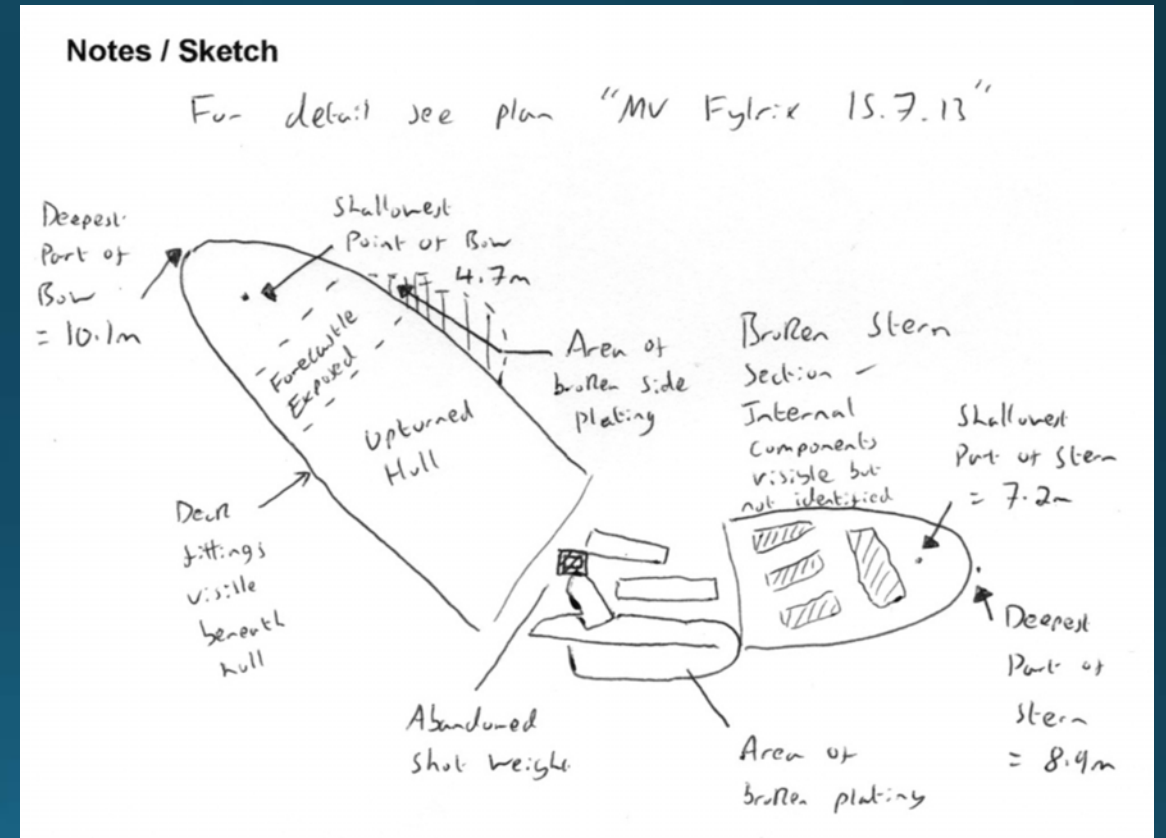 Notes / Sketch
For detail see plan "MV Fylrix 15.7.13"
Deepest
Part of
Bow
= 10.1m
Shallowest
Point of Bow
= 4.7m
Forecastle
Exposed
Upturned
Hull
Area of
broken side
plating
Broken Stern
Section -
Internal
components
visible but
not identified
Shallowest
Part of Stern
= 7.2m
Deck
fittings
visible
beneath
hull
Abandoned
shot weight
Area of
broken plating
Deepest
Part of
Stern
= 8.9m